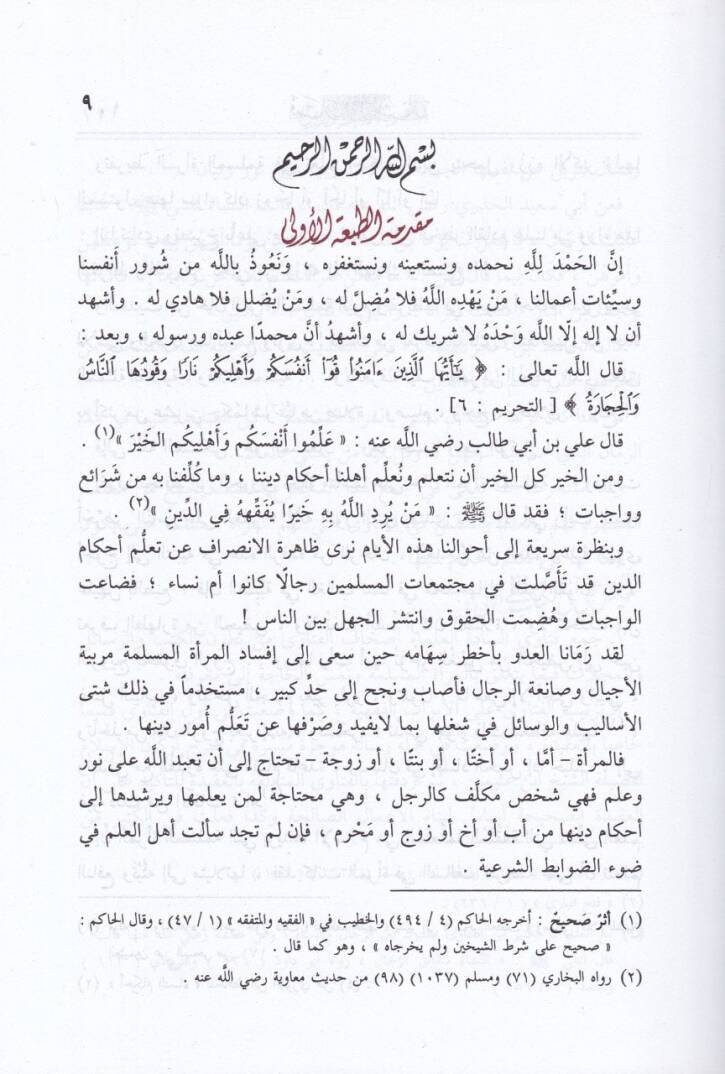 ٩
بسم الله الرحمن الرحيم
مقدمة الطبعة الأولى
إنَّ الحَمْدَ لِلَّهِ نحمده ونستعينه ونستغفره ، وَنَعُوذُ باللَّه من شرور أنفسنا
وسيِّئات أعمالنا ، مَنْ يَهْدِه اللَّهُ فلا مُضِلَّ له ، ومَنْ يُضلل فلا هادي له . وأشهد
أن لا إله إلَّا اللَّه وَحْدَهُ لا شريك له ، وأشهدُ أنَّ محمدًا عبده ورسوله ، وبعد :
قال اللَّه تعالى : ﴿ يَٰٓأَيُّهَا ٱلَّذِينَ ءَامَنُوا۟ قُوٓا۟ أَنفُسَكُمْ وَأَهْلِيكُمْ نَارًا وَقُودُهَا ٱلنَّاسُ
وَٱلْحِجَارَةُ ﴾ [ التحريم : ٦ ] .
قال علي بن أبي طالب رضي اللَّه عنه : « عَلِّمُوا أَنْفسَكُم وَأَهْلِيكُم الخَيْرَ »(١) .
ومن الخير كل الخير أن نتعلم ونُعلِّم أهلنا أحكام ديننا ، وما كُلِّفنا به من شَرَائع
وواجبات ؛ فقد قال ﷺ : « مَنْ يُرِدِ اللَّهُ بِهِ خَيرًا يُفَقِّههُ فِي الدِّينِ »(٢) .
وبنظرة سريعة إلى أحوالنا هذه الأيام نرى ظاهرة الانصراف عن تعلُّم أحكام
الدين قد تَأَصَّلت في مجتمعات المسلمين رجالًا كانوا أم نساء ؛ فضاعت
الواجبات وهُضِمت الحقوق وانتشر الجهل بين الناس !
لقد رَمَانا العدو بأخطر سِهَامه حين سعى إلى إفساد المرأة المسلمة مربية
الأجيال وصانعة الرجال فأصاب ونجح إلى حدِّ كبير ، مستخدماً في ذلك شتى
الأساليب والوسائل في شغلها بما لايفيد وصَرْفها عن تَعَلُّم أُمور دينها .
فالمرأة – أمَّا ، أو أختًا ، أو بنتًا ، أو زوجة – تحتاج إلى أن تعبد اللَّه على نور
وعلم فهي شخص مكلَّف كالرجل ، وهي محتاجة لمن يعلمها ويرشدها إلى
أحكام دينها من أب أو أخ أو زوج أو مَحْرم ، فإن لم تجد سألت أهل العلم في
ضوء الضوابط الشرعية .
(١) أثرٌ صَحيحٌ : أخرجه الحاكم (٤ / ٤٩٤) والخطيب في « الفقيه والمتفقه » (١ / ٤٧) ، وقال الحاكم :
« صحيح على شرط الشيخين ولم يخرجاه » ، وهو كما قال .
(٢) رواه البخاري (٧١) ومسلم (١٠٣٧) (٩٨) من حديث معاوية رضي اللَّه عنه .